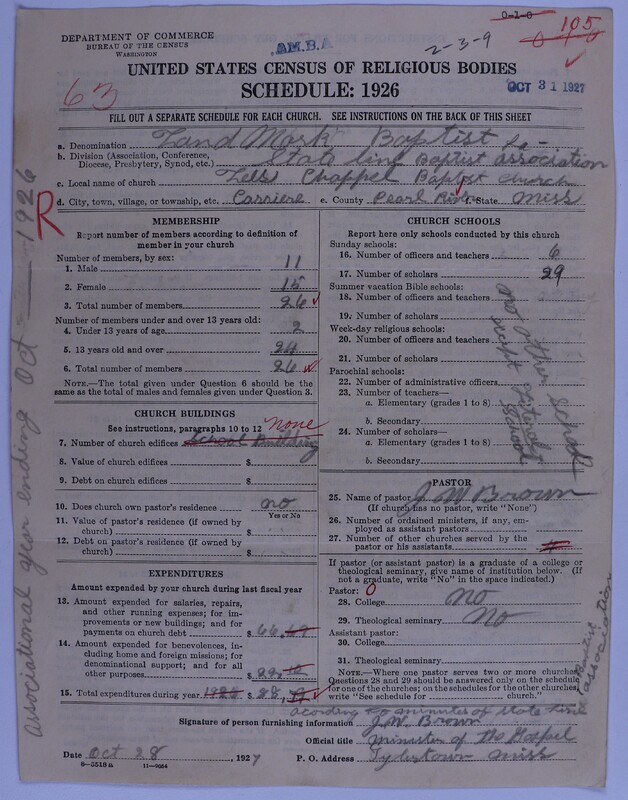 DEPARTMENT OF COMMERCE
BUREAU OF THE CENSUS
WASHINGTON
AM.B.A.
2-3-9
0-1-0
105
63
UNITED STATES CENSUS OF RELIGIOUS BODIES
SCHEDULE: 1926
OCT 31 1927
FILL OUT A SEPARATE SCHEDULE FOR EACH CHURCH. SEE INSTRUCTIONS ON THE BACK OF THIS SHEET
a. Denomination Land Mark Baptist
b. Division (Association, Conference, Diocese, Presbytery, Synod, etc.) State line Baptist association
c. Local name of church Zells Chappel Baptist Church
d. City, town, village, or township, etc. Carriere e. County Pearl River State Miss
R
associational year ending Oct — 1926
MEMBERSHIP
Report number of members according to definition of
member in your church
Number of members, by sex:
1. Male 11
2. Female 15
3. Total number of members 26
Number of members under and over 13 years old:
4. Under 13 years of age 2
5. 13 years old and over 24
6. Total number of members 26
NOTE.—The total given under Question 6 should be
same as the total of males and females given under Question 3.
CHURCH BUILDINGS
See instructions, paragraphs 10 to 12 none
7. Number of church edifices School Building
8. Value of church edifices $
9. Debt on church edifices $
10. Does church own pastor's residence no
Yes or No
11. Value of pastor's residence (if owned by
church) $
12. Debt on pastor's residence (if owned by
church) $
EXPENDITURES
Amount expended by your church during last fiscal year
13. Amount expended for salaries, repairs,
and other running expenses; for im-
provements or new buildings; and for
payments on church debt $ 66
14. Amount expended for benevolences, in-
cluding home and foreign missions; for
denominational support; and for all
other purposes $ 22
15. Total expenditures during year 1926 $ 88
CHURCH SCHOOLS
Report here only schools conducted by this church
Sunday schools:
16. Number of officers and teachers 6
17. Number of scholars 29
Summer vacation Bible schools:
18. Number of officers and teachers
19. Number of scholars
Week-day religious schools:
20. Number of officers and teachers
21. Number of scholars
Parochial schools:
22. Number of administrative officers
23. Number of teachers—
a. Elementary (grades 1 to 8)
b. Secondary
24. Number of scholars—
a. Elementary (grades 1 to 8)
b. Secondary
no other School
School
PASTOR
25. Name of pastor J. W. Brown
(If church has no pastor, write "None")
26. Number of ordained ministers, if any, em-
ployed as assistant pastors
27. Number of other churches served by the
pastor or his assistants
If pastor (or assistant pastor) is a graduate of a college or
theological seminary, give name of institution below. (If
not a graduate, write "No" in the space indicated.)
Pastor: 0
28. College no
29. Theological seminary no
Assistant pastor:
30. College
31. Theological seminary
NOTE.—Where one pastor serves two or more churches,
Questions 28 and 29 should be answered only on the schedule
for one of the churches; on the schedules for the other churches,
write "See schedule for church."
acording to minutes of State line
Baptist association
Signature of person furnishing information J. W. Brown
Official title Minister of the Gospel
Date Oct 28, 1927 P. O. Address Tylertown Miss
8—5518a 11—9034